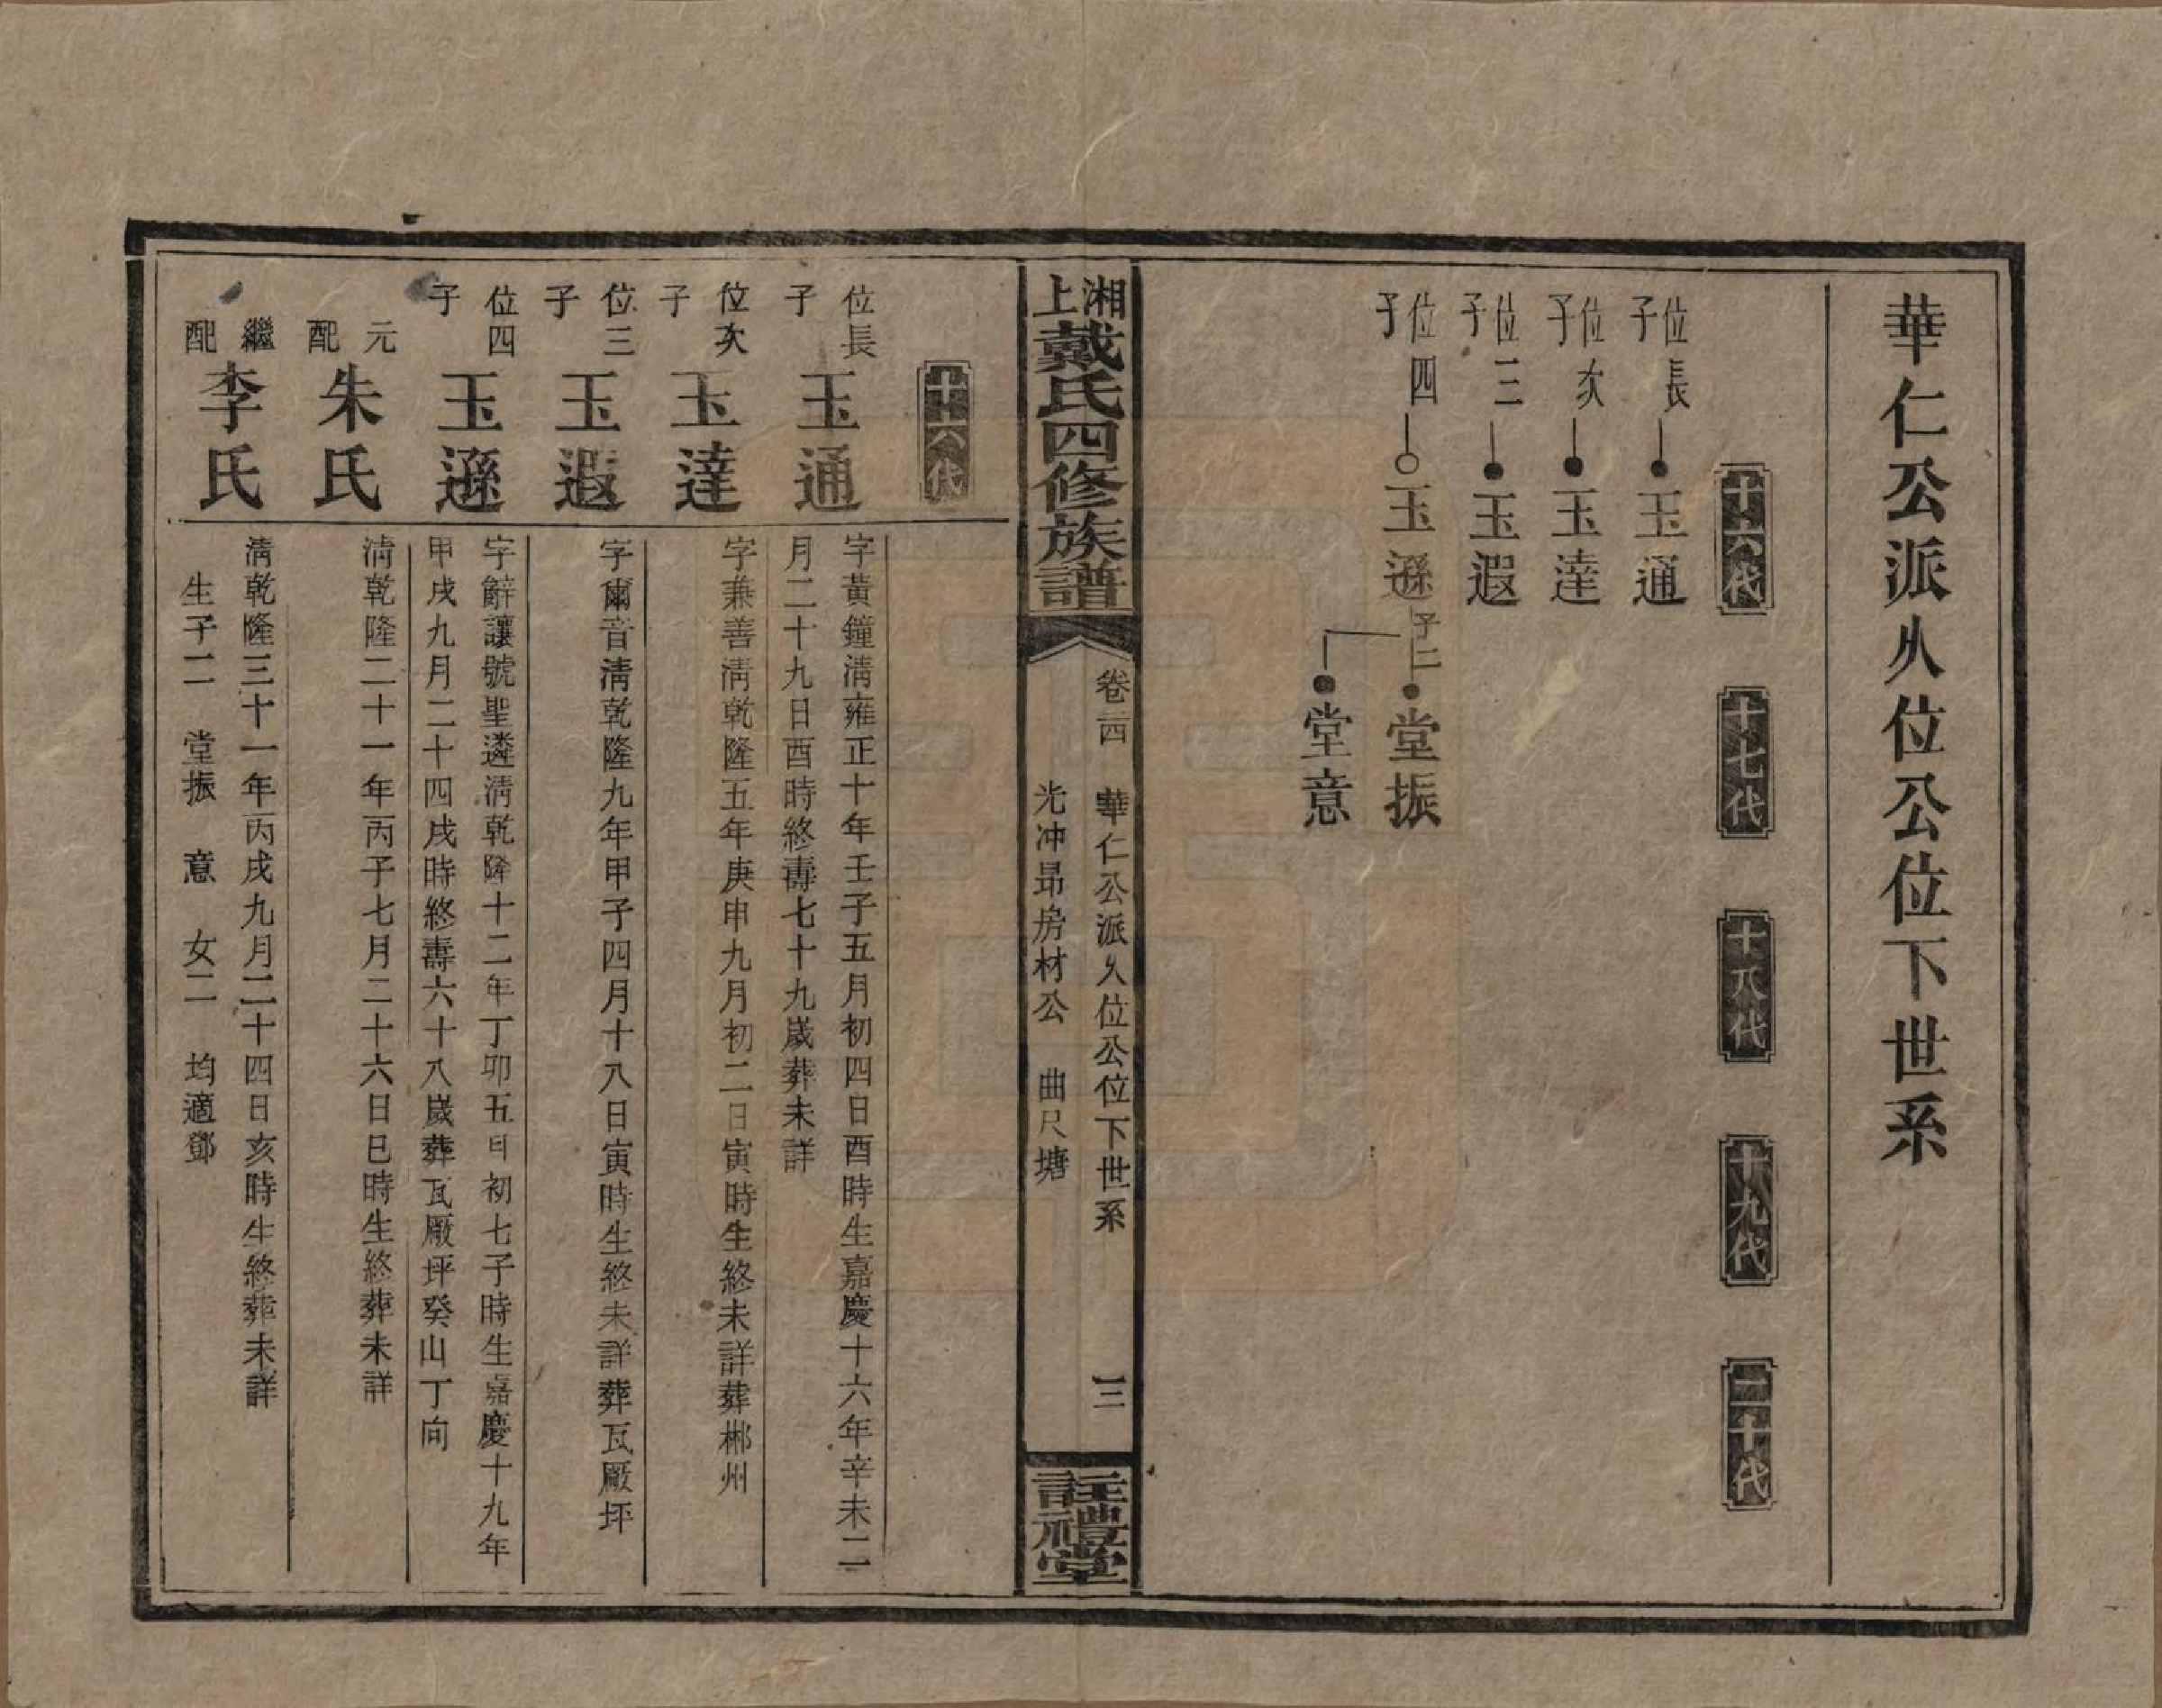 華仁公派乆位公位下世系
十六代
十七代
十八代
十九代
二十代
位長子 玉通
位次子 玉達
位三子 玉遐
位四子 玉遜 子二 堂振
堂意
湘上戴氏四修族譜
卷二四 華仁公派乆位公位下世系 三
光冲昻房材公 曲尺塘
註禮堂
十六代
位長子 玉通
字黃鐘淸雍正十年壬子五月初四日酉時生嘉慶十六年辛未二
月二十九日酉時終壽七十九歲葬未詳
位次子 玉達
字兼善淸乾隆五年庚申九月初二日寅時生終未詳葬郴州
位三子 玉遐
字爾音淸乾隆九年甲子四月十八日寅時生終未詳葬瓦廠坪
位四子 玉遜
字辭讓號聖遴淸乾隆十二年丁卯五月初七子時生嘉慶十九年
甲戌九月二十四戌時終壽六十八歲葬瓦廠坪癸山丁向
元配 朱氏
淸乾隆二十一年丙子七月二十六日巳時生終葬未詳
繼配 李氏
淸乾隆三十一年丙戌九月二十四日亥時生終葬未詳
生子二 堂振 意 女二 均適鄧